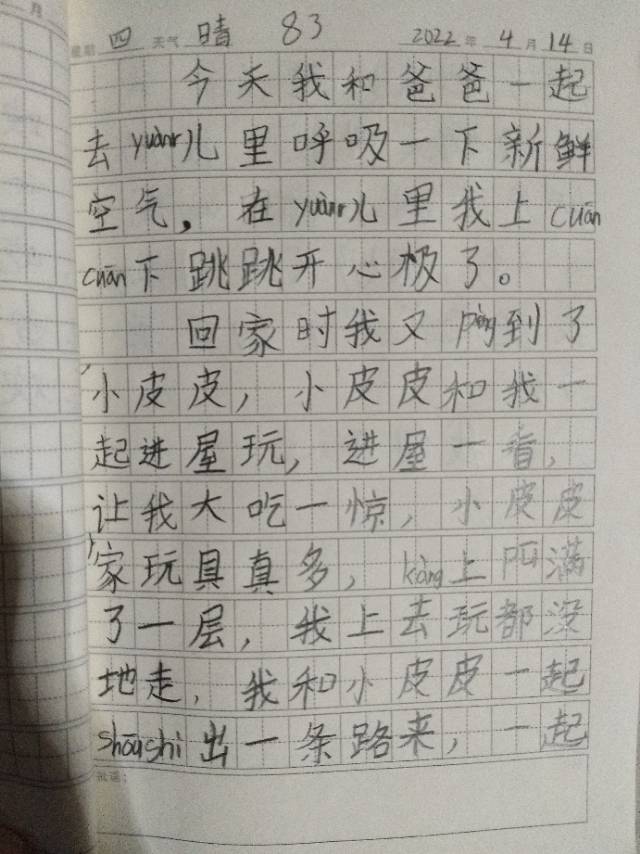 星期 四 天气 晴 83 2022 年 4 月 14 日
今天我和爸爸一起
去yuànr儿里呼吸一下新鲜
空气，在yuànr儿里我上cuān
cuān下跳跳开心极了。
回家时我又pèng到了
小皮皮，小皮皮和我一
起进屋玩，进屋一看，
让我大吃一惊，小皮皮
家玩具真多，kàng上 满
了一层，我上去玩都没
地走，我和小皮皮一起
shōushi出一条路来，一起
月